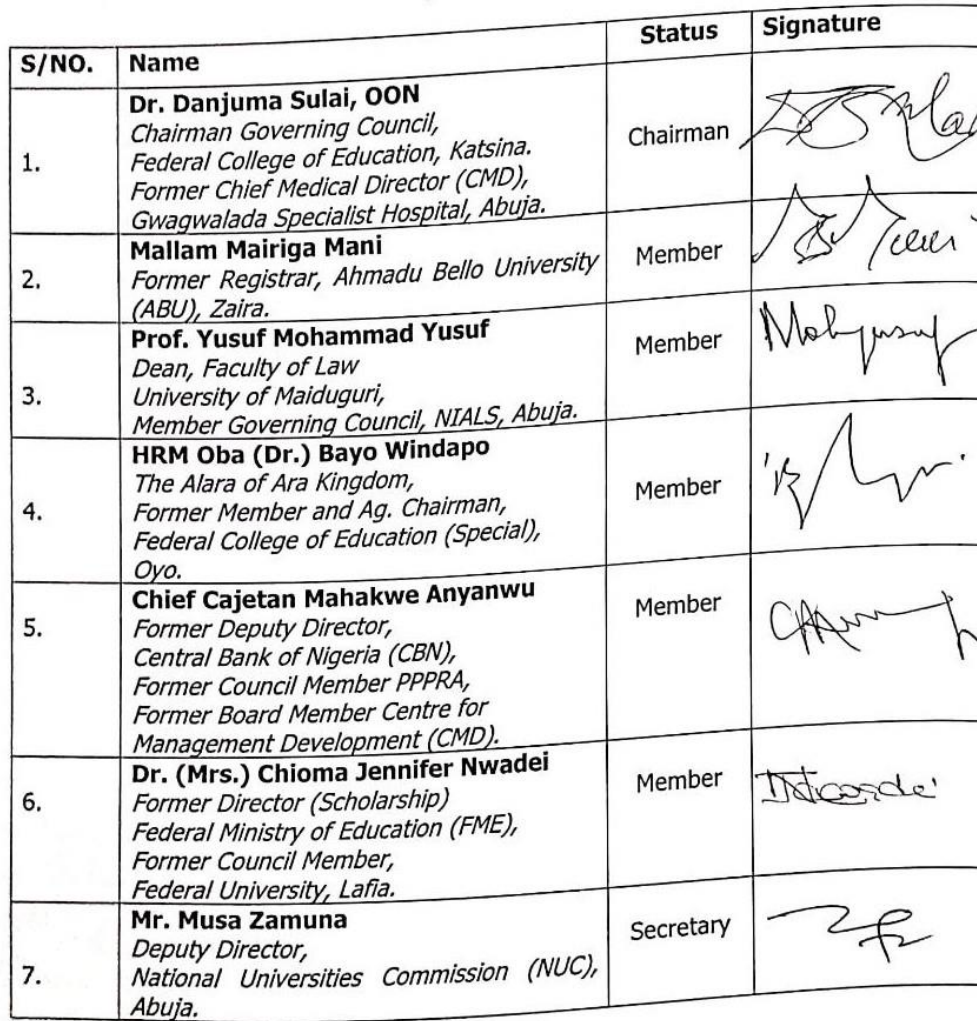 S/NO. Name Status Signature
Dr. Danjuma Sulai, OON
Chairman Governing Council,
1. Federal College of Education, Katsina. Chairman
Former Chief Medical Director (CMD),
Gwagwalada Specialist Hospital, Abuja.
Mallam Mairiga Mani
2. Former Registrar, Ahmadu Bello University Member
(ABU), Zaira.
Prof. Yusuf Mohammad Yusuf
Dean, Faculty of Law Member
3. University of Maiduguri,
Member Governing Council, NIALS, Abuja.
HRM Oba (Dr.) Bayo Windapo
The Alara of Ara Kingdom,
4. Former Member and Ag. Chairman, Member
Federal College of Education (Special),
Oyo.
Chief Cajetan Mahakwe Anyanwu
5. Former Deputy Director, Member
Central Bank of Nigeria (CBN),
Former Council Member PPPRA,
Former Board Member Centre for
Management Development (CMD).
Dr. (Mrs.) Chioma Jennifer Nwadei
6. Former Director (Scholarship) Member
Federal Ministry of Education (FME),
Former Council Member,
Federal University, Lafia.
Mr. Musa Zamuna
Deputy Director, Secretary
7. National Universities Commission (NUC),
Abuja.